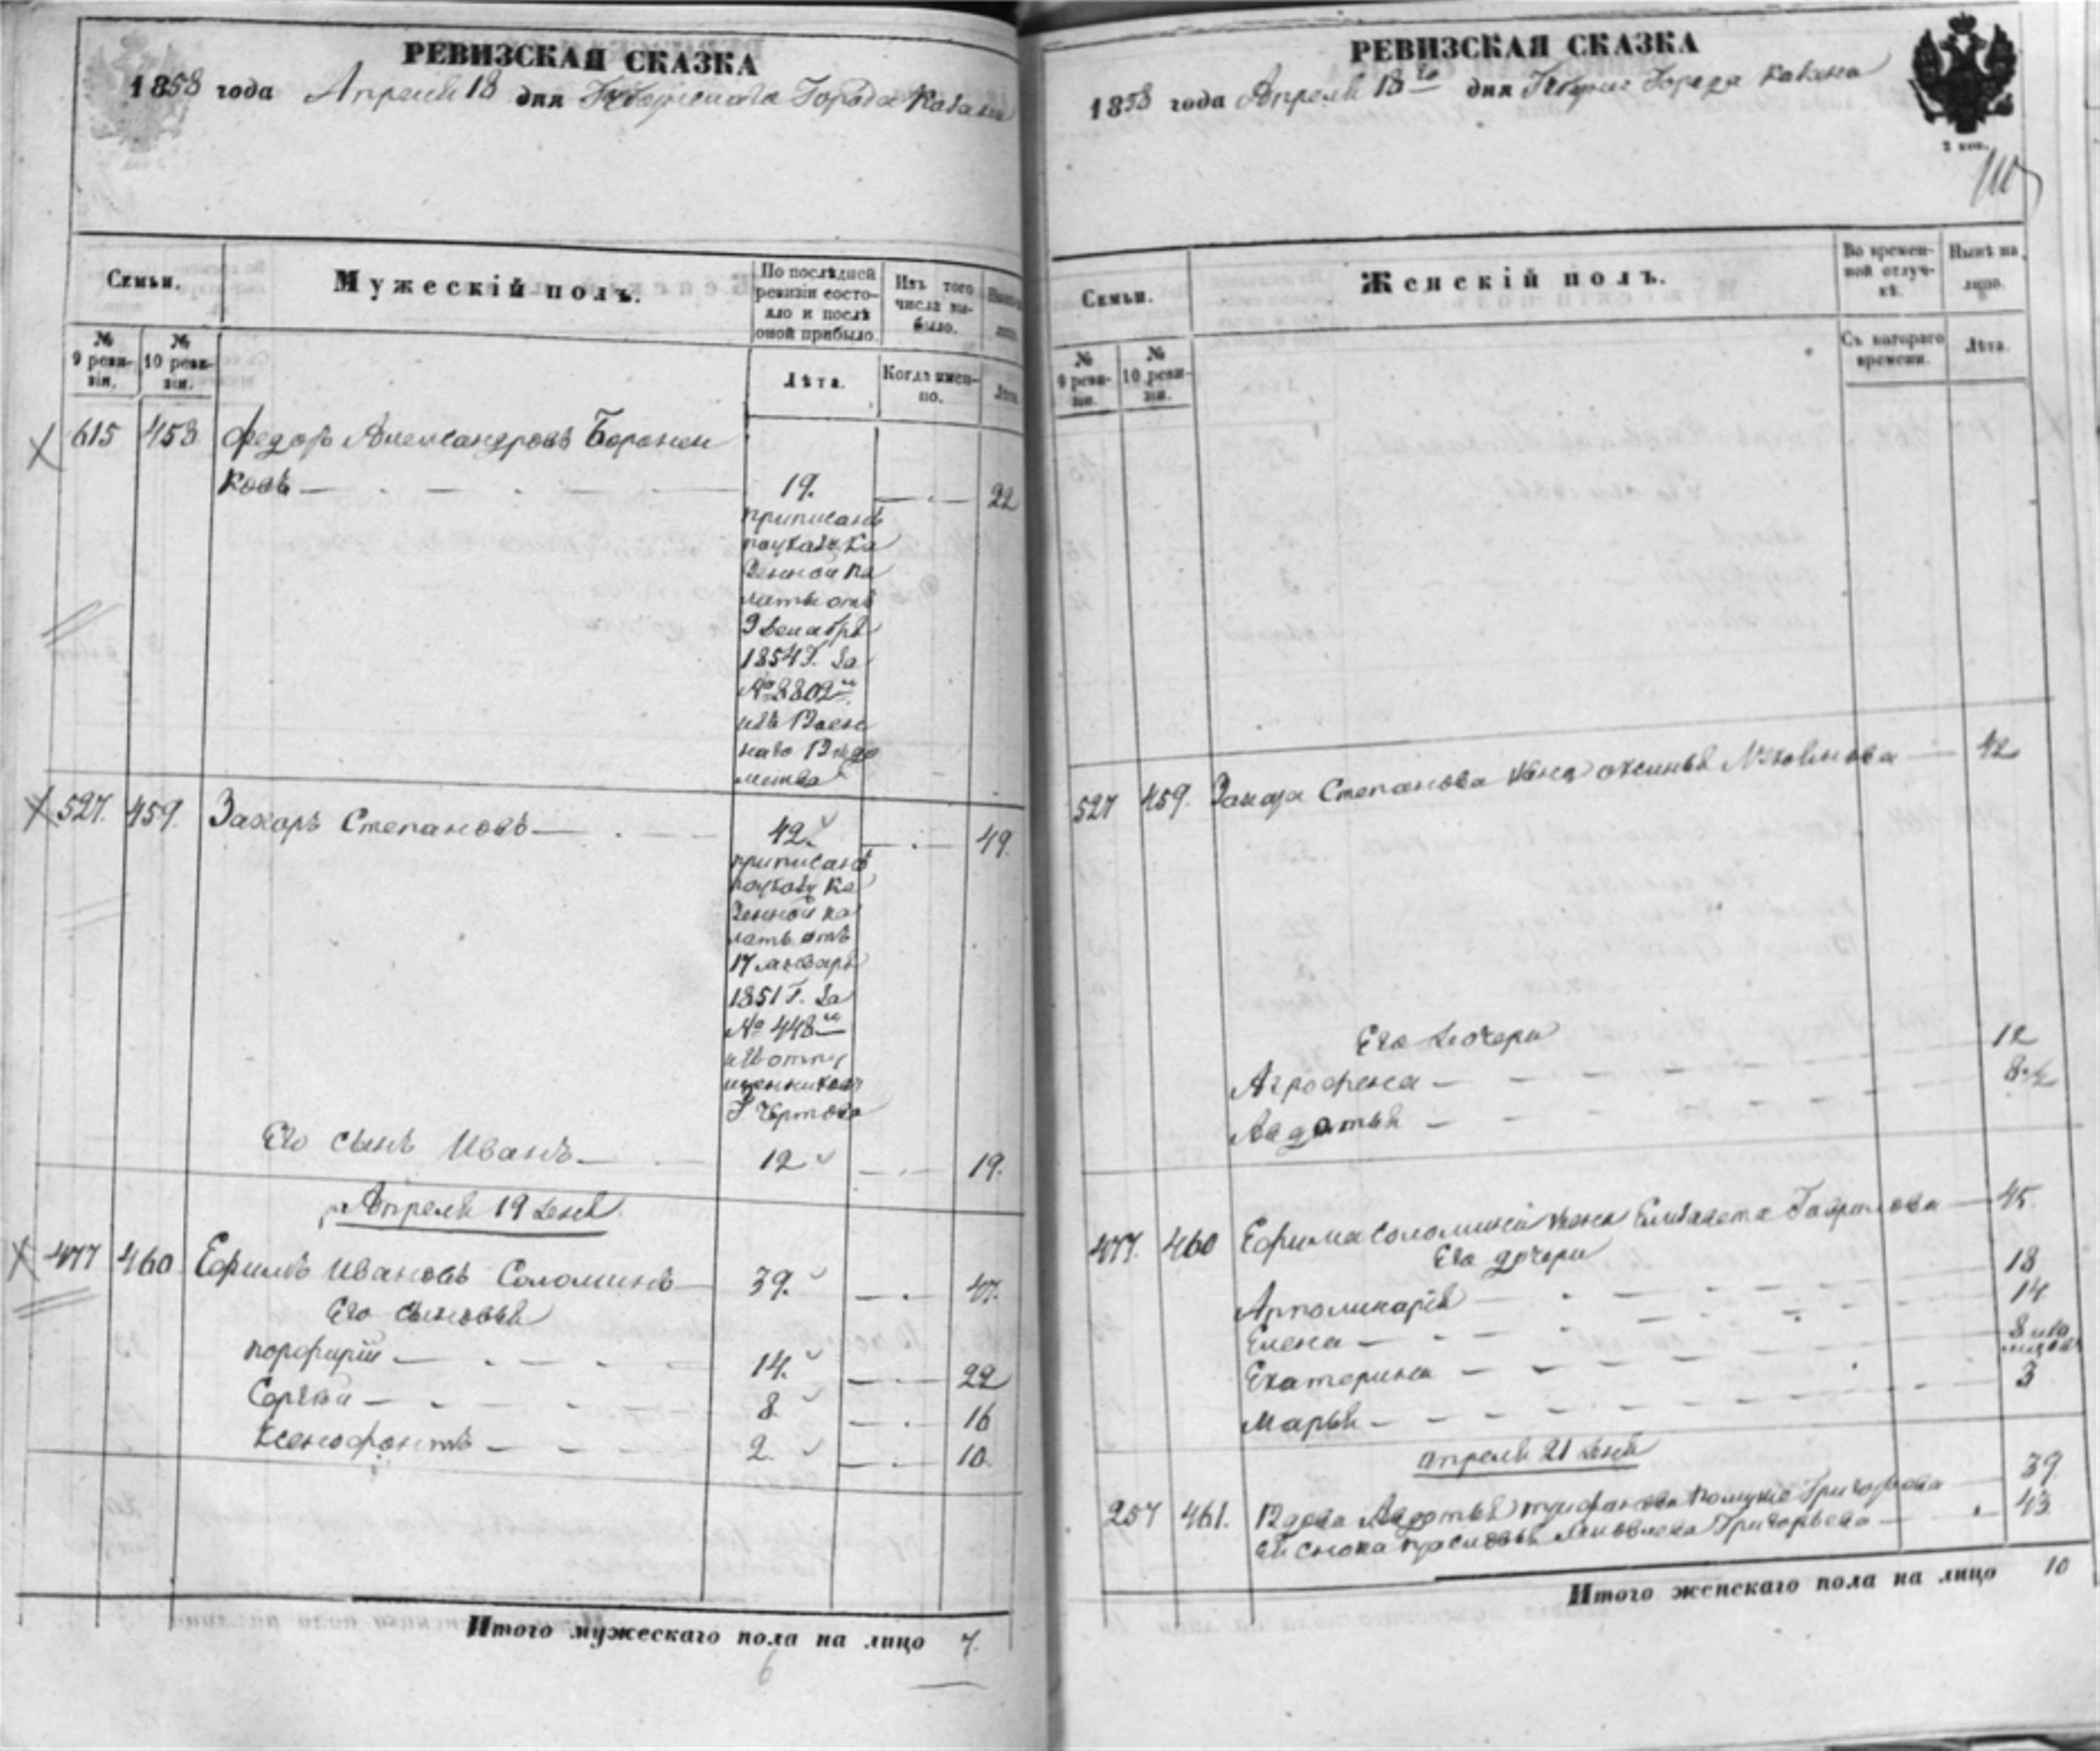 РЕВИЗСКАЯ СКАЗКА
1858 года Апреля 18 дня Города Казани
Семьи.
Мужескій полъ.
По послѣдней ревизіи состояло и послѣ оной прибыло.
Изъ того числа выбыло.
№ 9 ревизіи.
№ 10 ревизіи.
Лѣта.
Когда именно.
Лѣта.
615 458 Федоръ Александровъ Боронен
ковъ 19. 22
приписанъ
по указу Ка
зенной па
латы отъ
9 декабря
1854 г. за
№ 8802
изъ Воен
наго Вѣдо
мства
527. 459. Захаръ Степановъ 42. 49.
приписанъ
по указу Ка
зенной па
латы отъ
17 января
1851 г. за
№ 448
изъ отпу
щенниковъ
Г. Чертова
Его сынъ Иванъ 12 19.
Апреля 19 дня
477 460 Ефимъ Ивановъ Соломинъ 39. 47.
Его сыновья
Порфирій 14. 22
Сергѣй 8 16
Ксенофонтъ 2. 10
Итого мужескаго пола на лицо 7.
6
РЕВИЗСКАЯ СКАЗКА
1858 года Апреля 18го дня Города Казани
2 коп.
Семьи.
Женскій полъ.
Во временной отлучкѣ.
Нынѣ на лицо.
№ 9 ревизіи.
№ 10 ревизіи.
Съ котораго времени.
Лѣта.
527 459. Захара Степанова жена 42
Его дочери
Агрофена 12
Авдотья
477. 460 Ефима Соломина жена Елизавета Гаврилова 45
Его дочери
Апполинарія 18
Елена 14
Екатерина 8
Марья 3
Апреля 21 дня
257 461. Вдова Авдотья Григорьева 39
Ей сноха Яковлева Григорьева 43
Итого женскаго пола на лицо 10